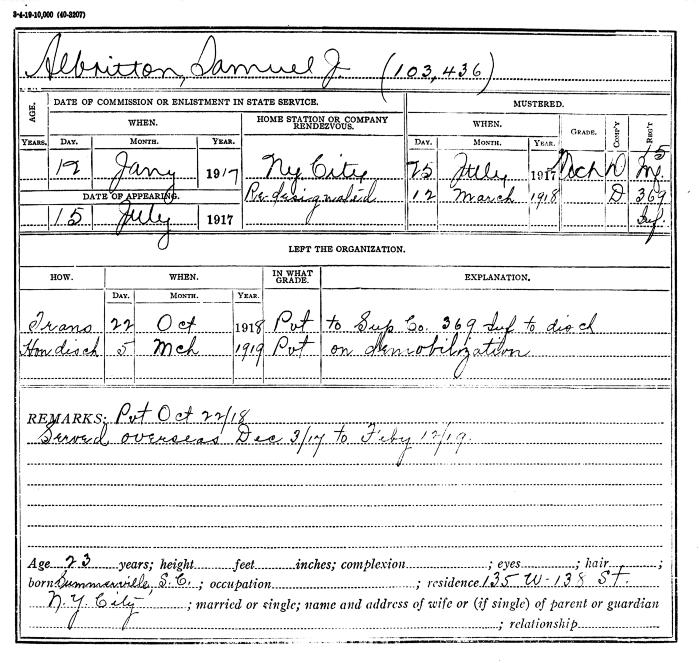 3-4-19-10,000 (40-3207)
Albritton, Samuel J. (103,436)
AGE. DATE OF COMMISSION OR ENLISTMENT IN STATE SERVICE. MUSTERED.
WHEN. HOME STATION OR COMPANY RENDEZVOUS. WHEN. GRADE. COMP'Y REG'T
YEARS. DAY. MONTH. YEAR. DAY. MONTH. YEAR.
12 Jany 1917 Ny City 25 July 1917 D 15 Inf
DATE OF APPEARING. Redesignated 12 March 1918 D 369
15 July 1917 Inf.
LEFT THE ORGANIZATION.
HOW. WHEN. IN WHAT GRADE. EXPLANATION.
DAY. MONTH. YEAR.
Trans 22 Oct 1918 Pvt to Sup Co. 369 Inf to disch
Hon disch 5 Mch 1919 Pvt on demobilization
REMARKS: Pvt Oct 22/18
Served overseas Dec 3/17 to Feby 12/19.
Age 23 years; height feet inches; complexion ; eyes ; hair ;
born Summerville, S.C. ; occupation ; residence 135 W-138 St.
N.Y. City ; married or single; name and address of wife or (if single) of parent or guardian
; relationship